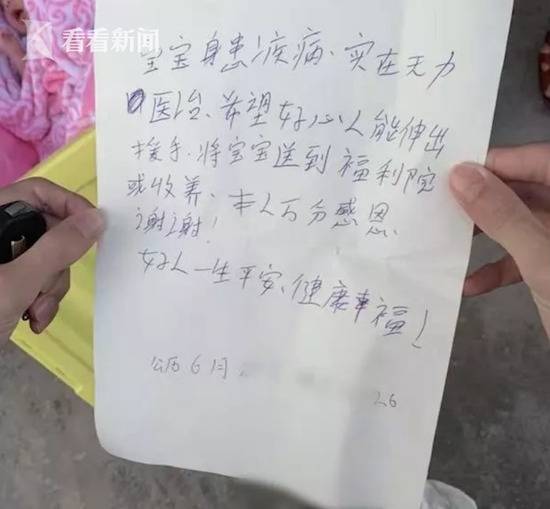 看看新闻
宝宝身患疾病、实在无力
医治、希望好心人能伸出
援手、将宝宝送到福利院
或收养、本人万分感恩
谢谢!
好人一生平安、健康幸福!
公历6月
26